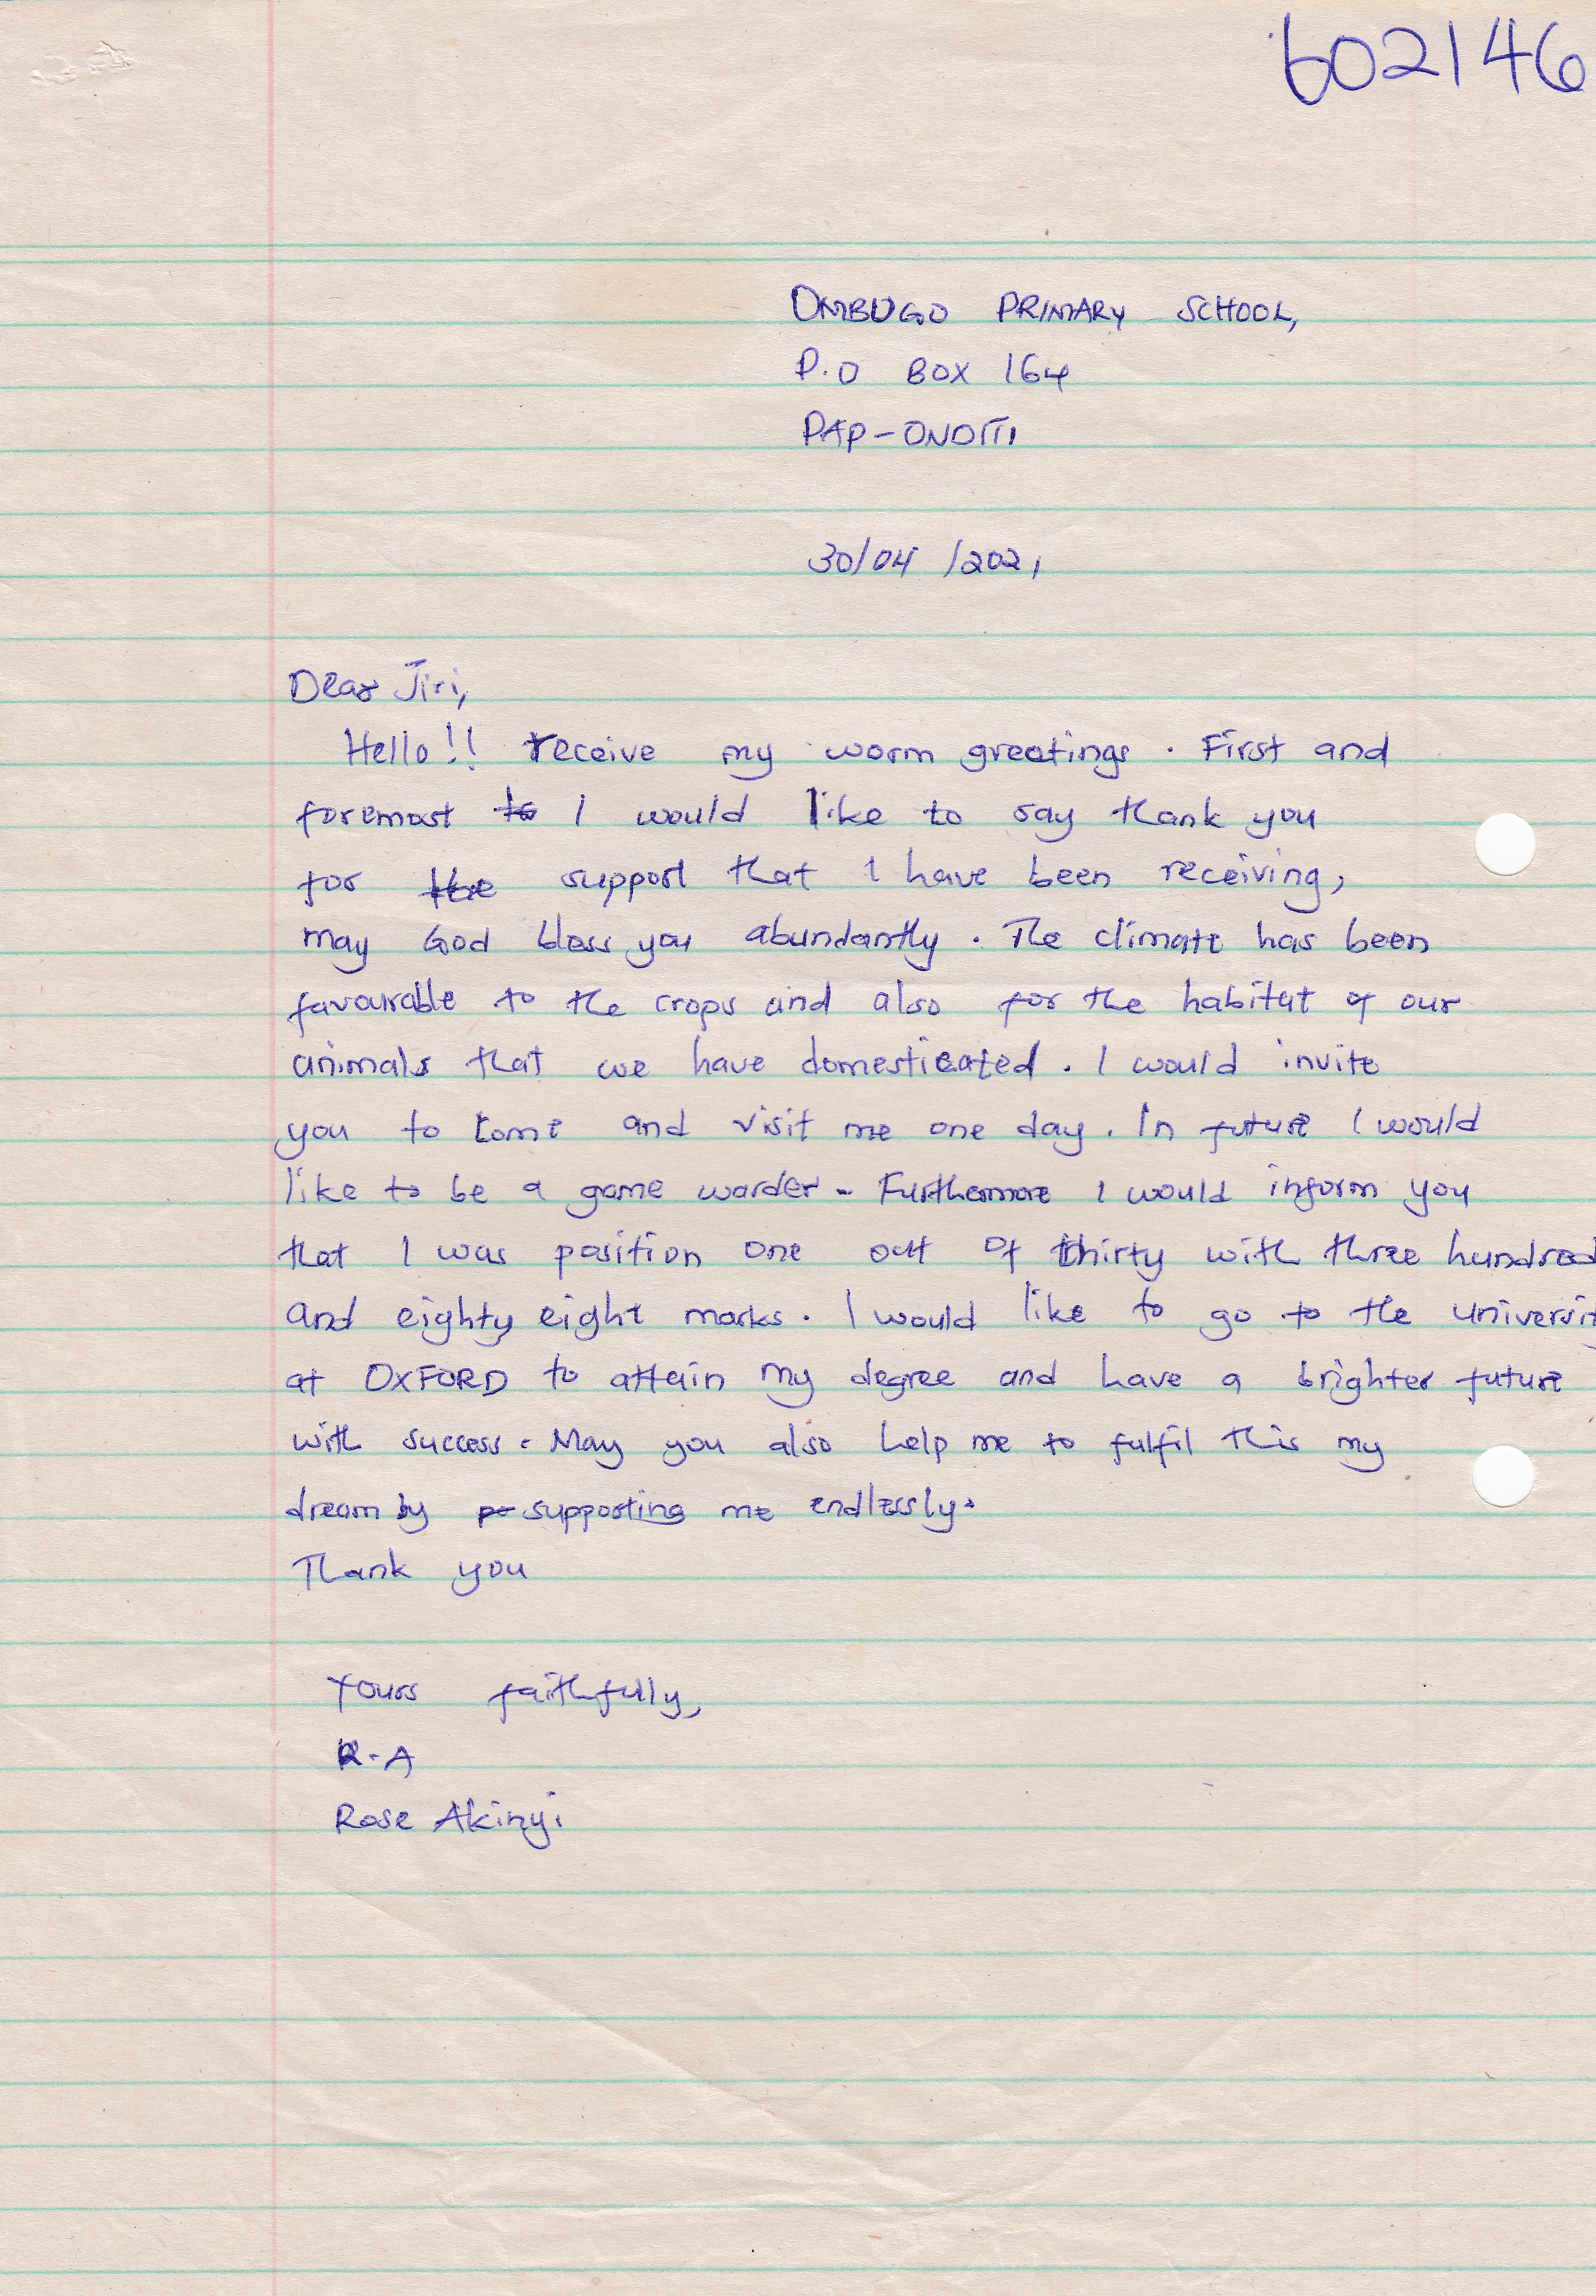 602146
OMBUGO PRIMARY SCHOOL,
P.O BOX 164
PAP-ONDITI
30/04/2021
Dear Jiri,
Hello!! receive my worm greetings. First and
foremost to I would like to say thank you
for the support that I have been receiving,
may God bless you abundantly. The climate has been
favourable to the crops and also for the habitat of our
animals that we have domesticated. I would invite
you to come and visit me one day. In future I would
like to be a game warder. Furthermore I would inform you
that I was position one out of thirty with three hundred
and eighty eight marks. I would like to go to the universit
at OXFORD to attain my degree and have a brighter future
with success. May you also help me to fulfil this my
dream by supporting me endlessly.
Thank you
Yours faithfully,
R.A
Rose Akinyi